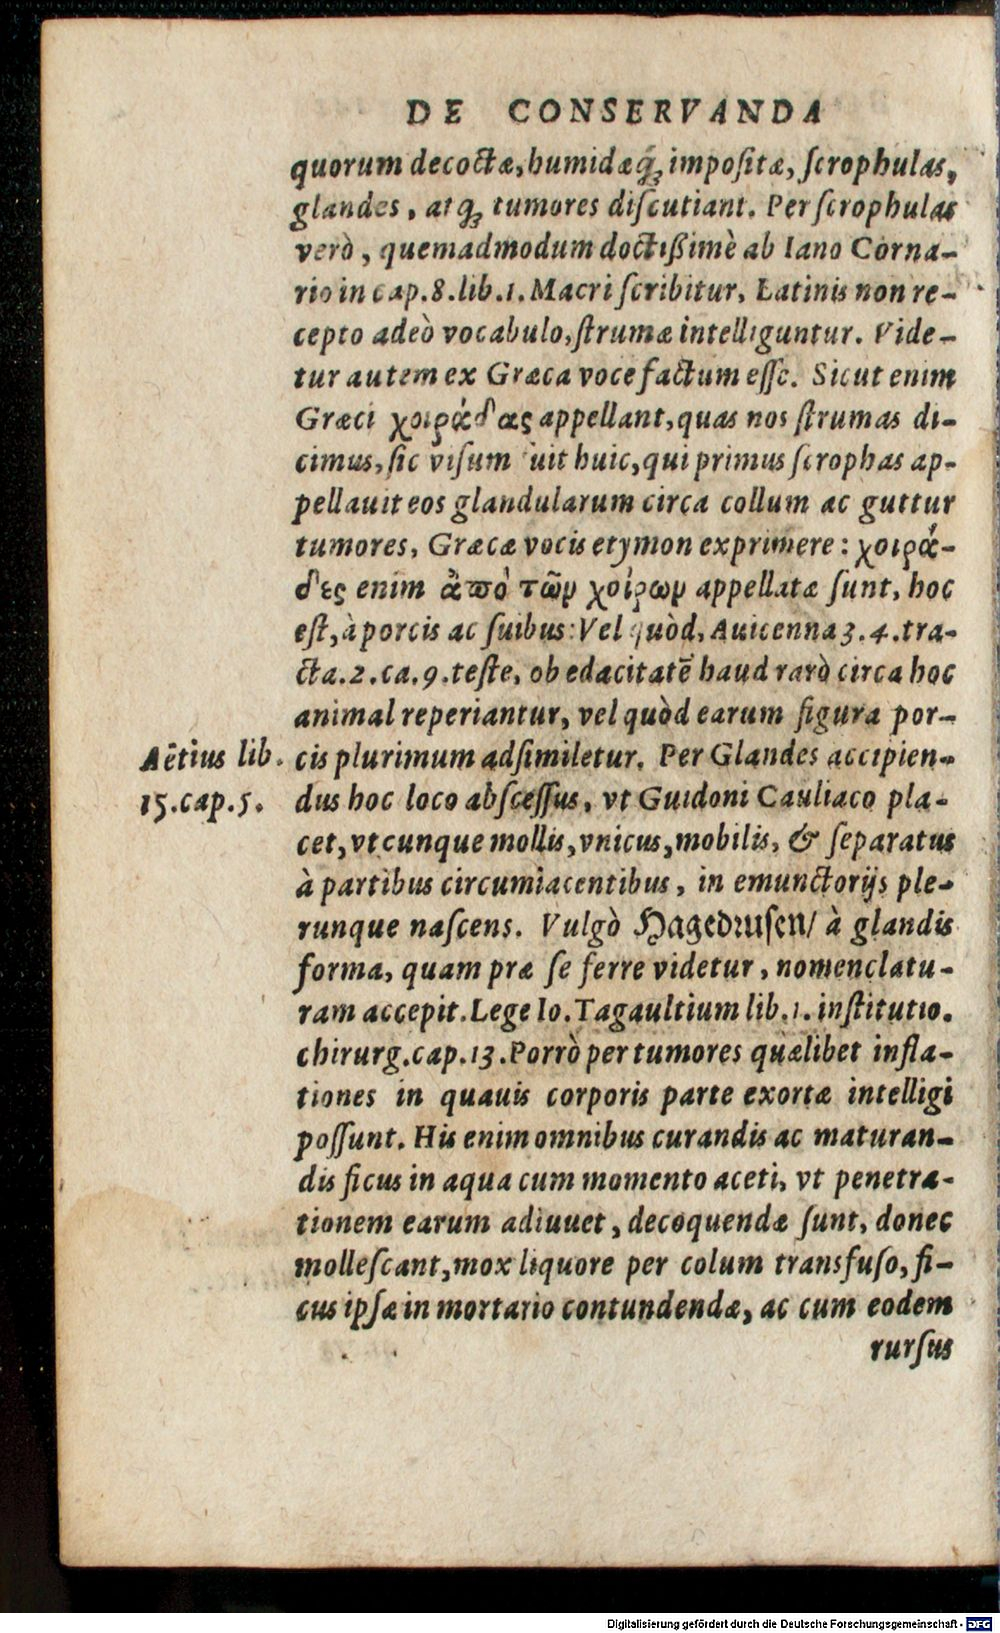 DE CONSERVANDA
quorum decoctæ, humidæq́ꝫ impoſitæ, ſcrophulas,
glandes, atqꝫ tumores diſcutiant. Per ſcrophulas
verò, quemadmodum doctißimè ab Iano Corna-
rio in cap.8.lib.1. Macri ſcribitur, Latinis non re-
cepto adeò vocabulo, ſtrumæ intelliguntur. Vide-
tur autem ex Græca voce factum eſſe. Sicut enim
Græci χοιράδας appellant, quas nos ſtrumas di-
cimus, ſic viſum uit huic, qui primus ſcrophas ap-
pellauit eos glandularum circa collum ac guttur
tumores, Græcæ vocis etymon exprimere: χοιρά-
δες enim ἀπὸ τῶν χοίρων appellatæ ſunt, hoc
eſt, à porcis ac ſuibus: Vel quòd, Auicenna 3.4.tra-
cta.2.ca.9.teſte, ob edacitatē haud rarò circa hoc
animal reperiantur, vel quòd earum figura por-
Aëtius lib. cis plurimum adſimiletur. Per Glandes accipien-
15.cap.5. dus hoc loco abſceſſus, vt Guidoni Cauliaco pla-
cet, vtcunque mollis, vnicus, mobilis, & ſeparatus
à partibus circumiacentibus, in emunctorijs ple-
runque naſcens. Vulgò Hagedruſen/ à glandis
forma, quam præ ſe ferre videtur, nomenclatu-
ram accepit. Lege Io. Tagaultium lib.1. inſtitutio.
chirurg.cap.13. Porrò per tumores quælibet infla-
tiones in quauis corporis parte exortæ intelligi
poſſunt. His enim omnibus curandis ac maturan-
dis ficus in aqua cum momento aceti, vt penetra-
tionem earum adiuuet, decoquendæ ſunt, donec
molleſcant, mox liquore per colum transfuſo, fi-
cus ipſæ in mortario contundendæ, ac cum eodem
rurſus
Digitalisierung gefördert durch die Deutsche Forschungsgemeinschaft - DFG